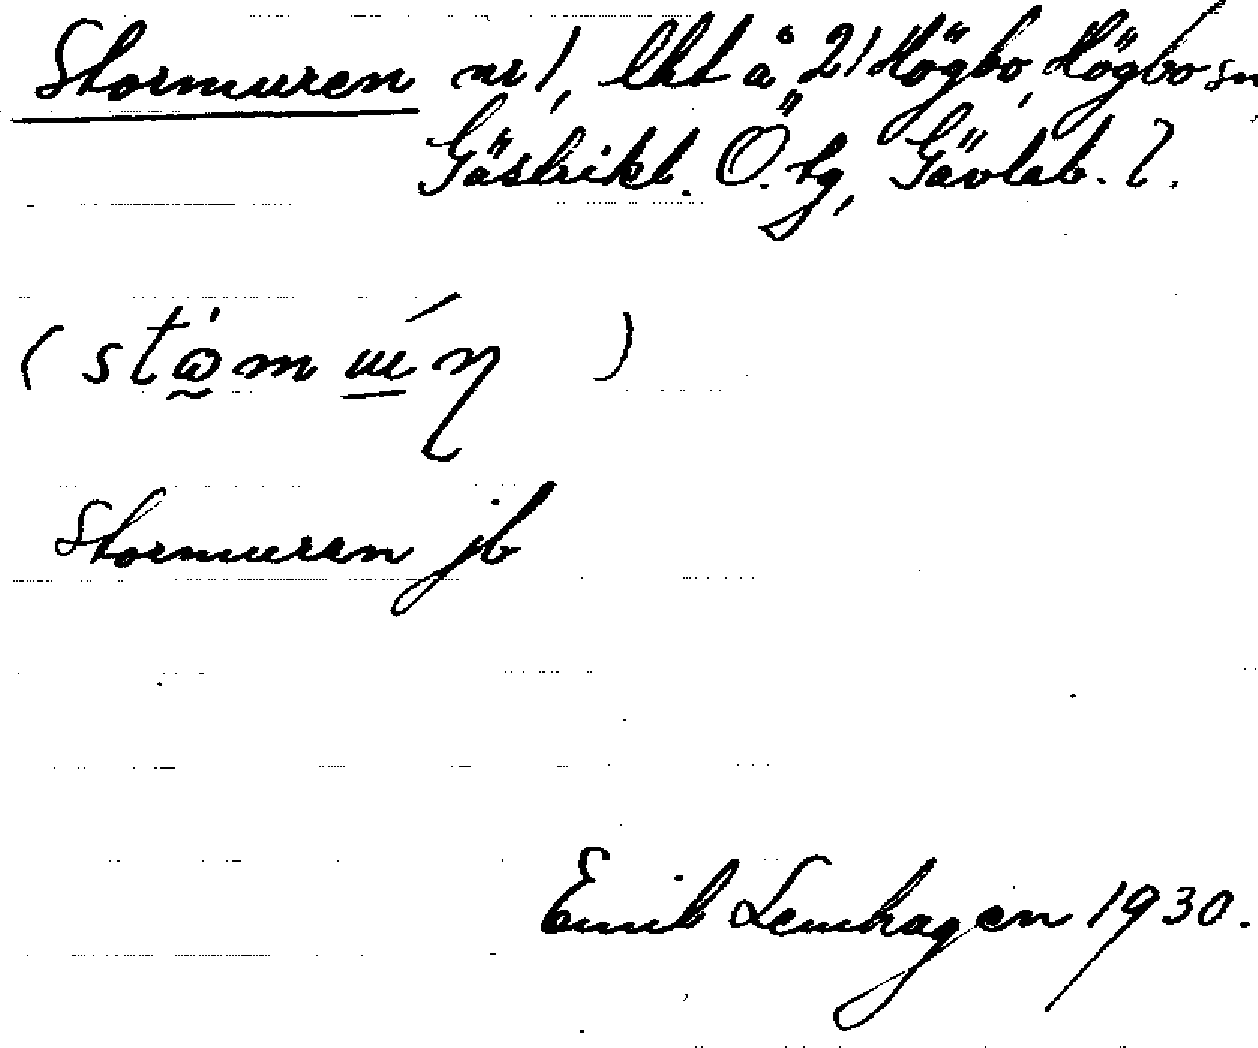 Stormuren nr 1, lht å 21 Högbo, Högbo sn,
Gästrikl. Ö. tg, Gävleb. l.
Stormuren jb
Emil Lemhagen 1930.